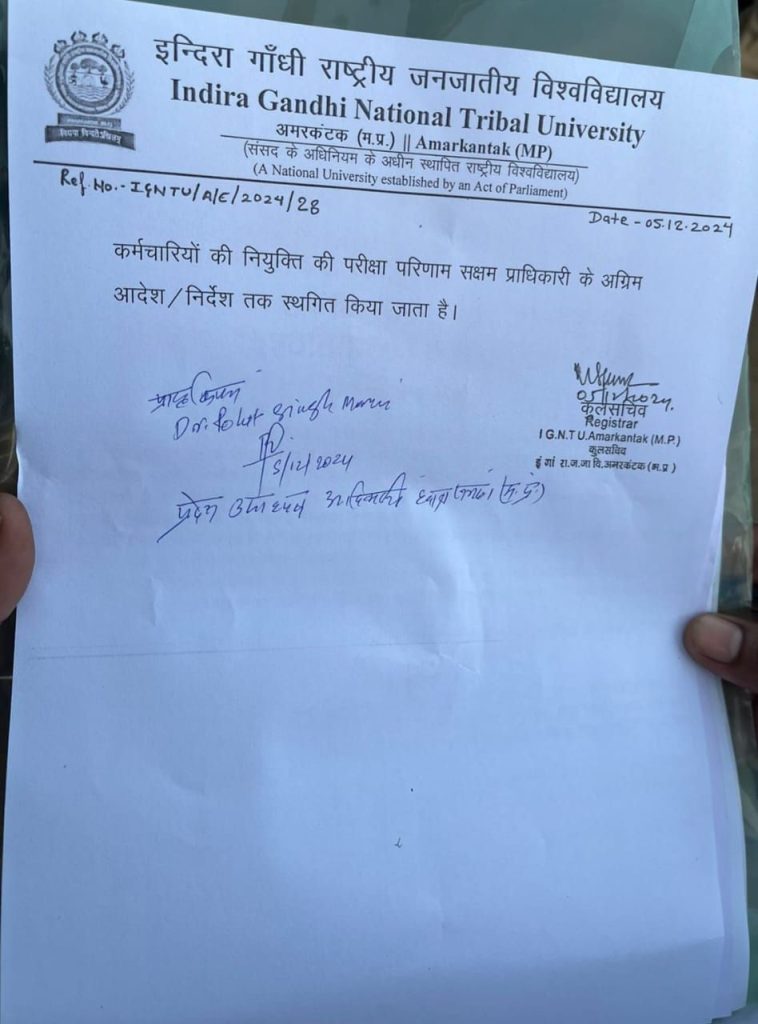 इन्दिरा गाँधी राष्ट्रीय जनजातीय विश्वविद्यालय
Indira Gandhi National Tribal University
अमरकंटक (म.प्र.) || Amarkantak (MP)
(संसद के अधिनियम के अधीन स्थापित राष्ट्रीय विश्वविद्यालय)
(A National University established by an Act of Parliament)
Ref. No.- IGNTU/A/E/2024/28
Date - 05.12.2024
कर्मचारियों की नियुक्ति की परीक्षा परिणाम सक्षम प्राधिकारी के अग्रिम
आदेश/निर्देश तक स्थगित किया जाता है।
05/12/2024.
कुलसचिव
Registrar
I G.N.T U.Amarkantak (M.P.)
कुलसचिव
इं गां रा.ज.जा वि.अमरकंटक (म.प्र)
Dr. Singh
5/12/2024
प्रदेश